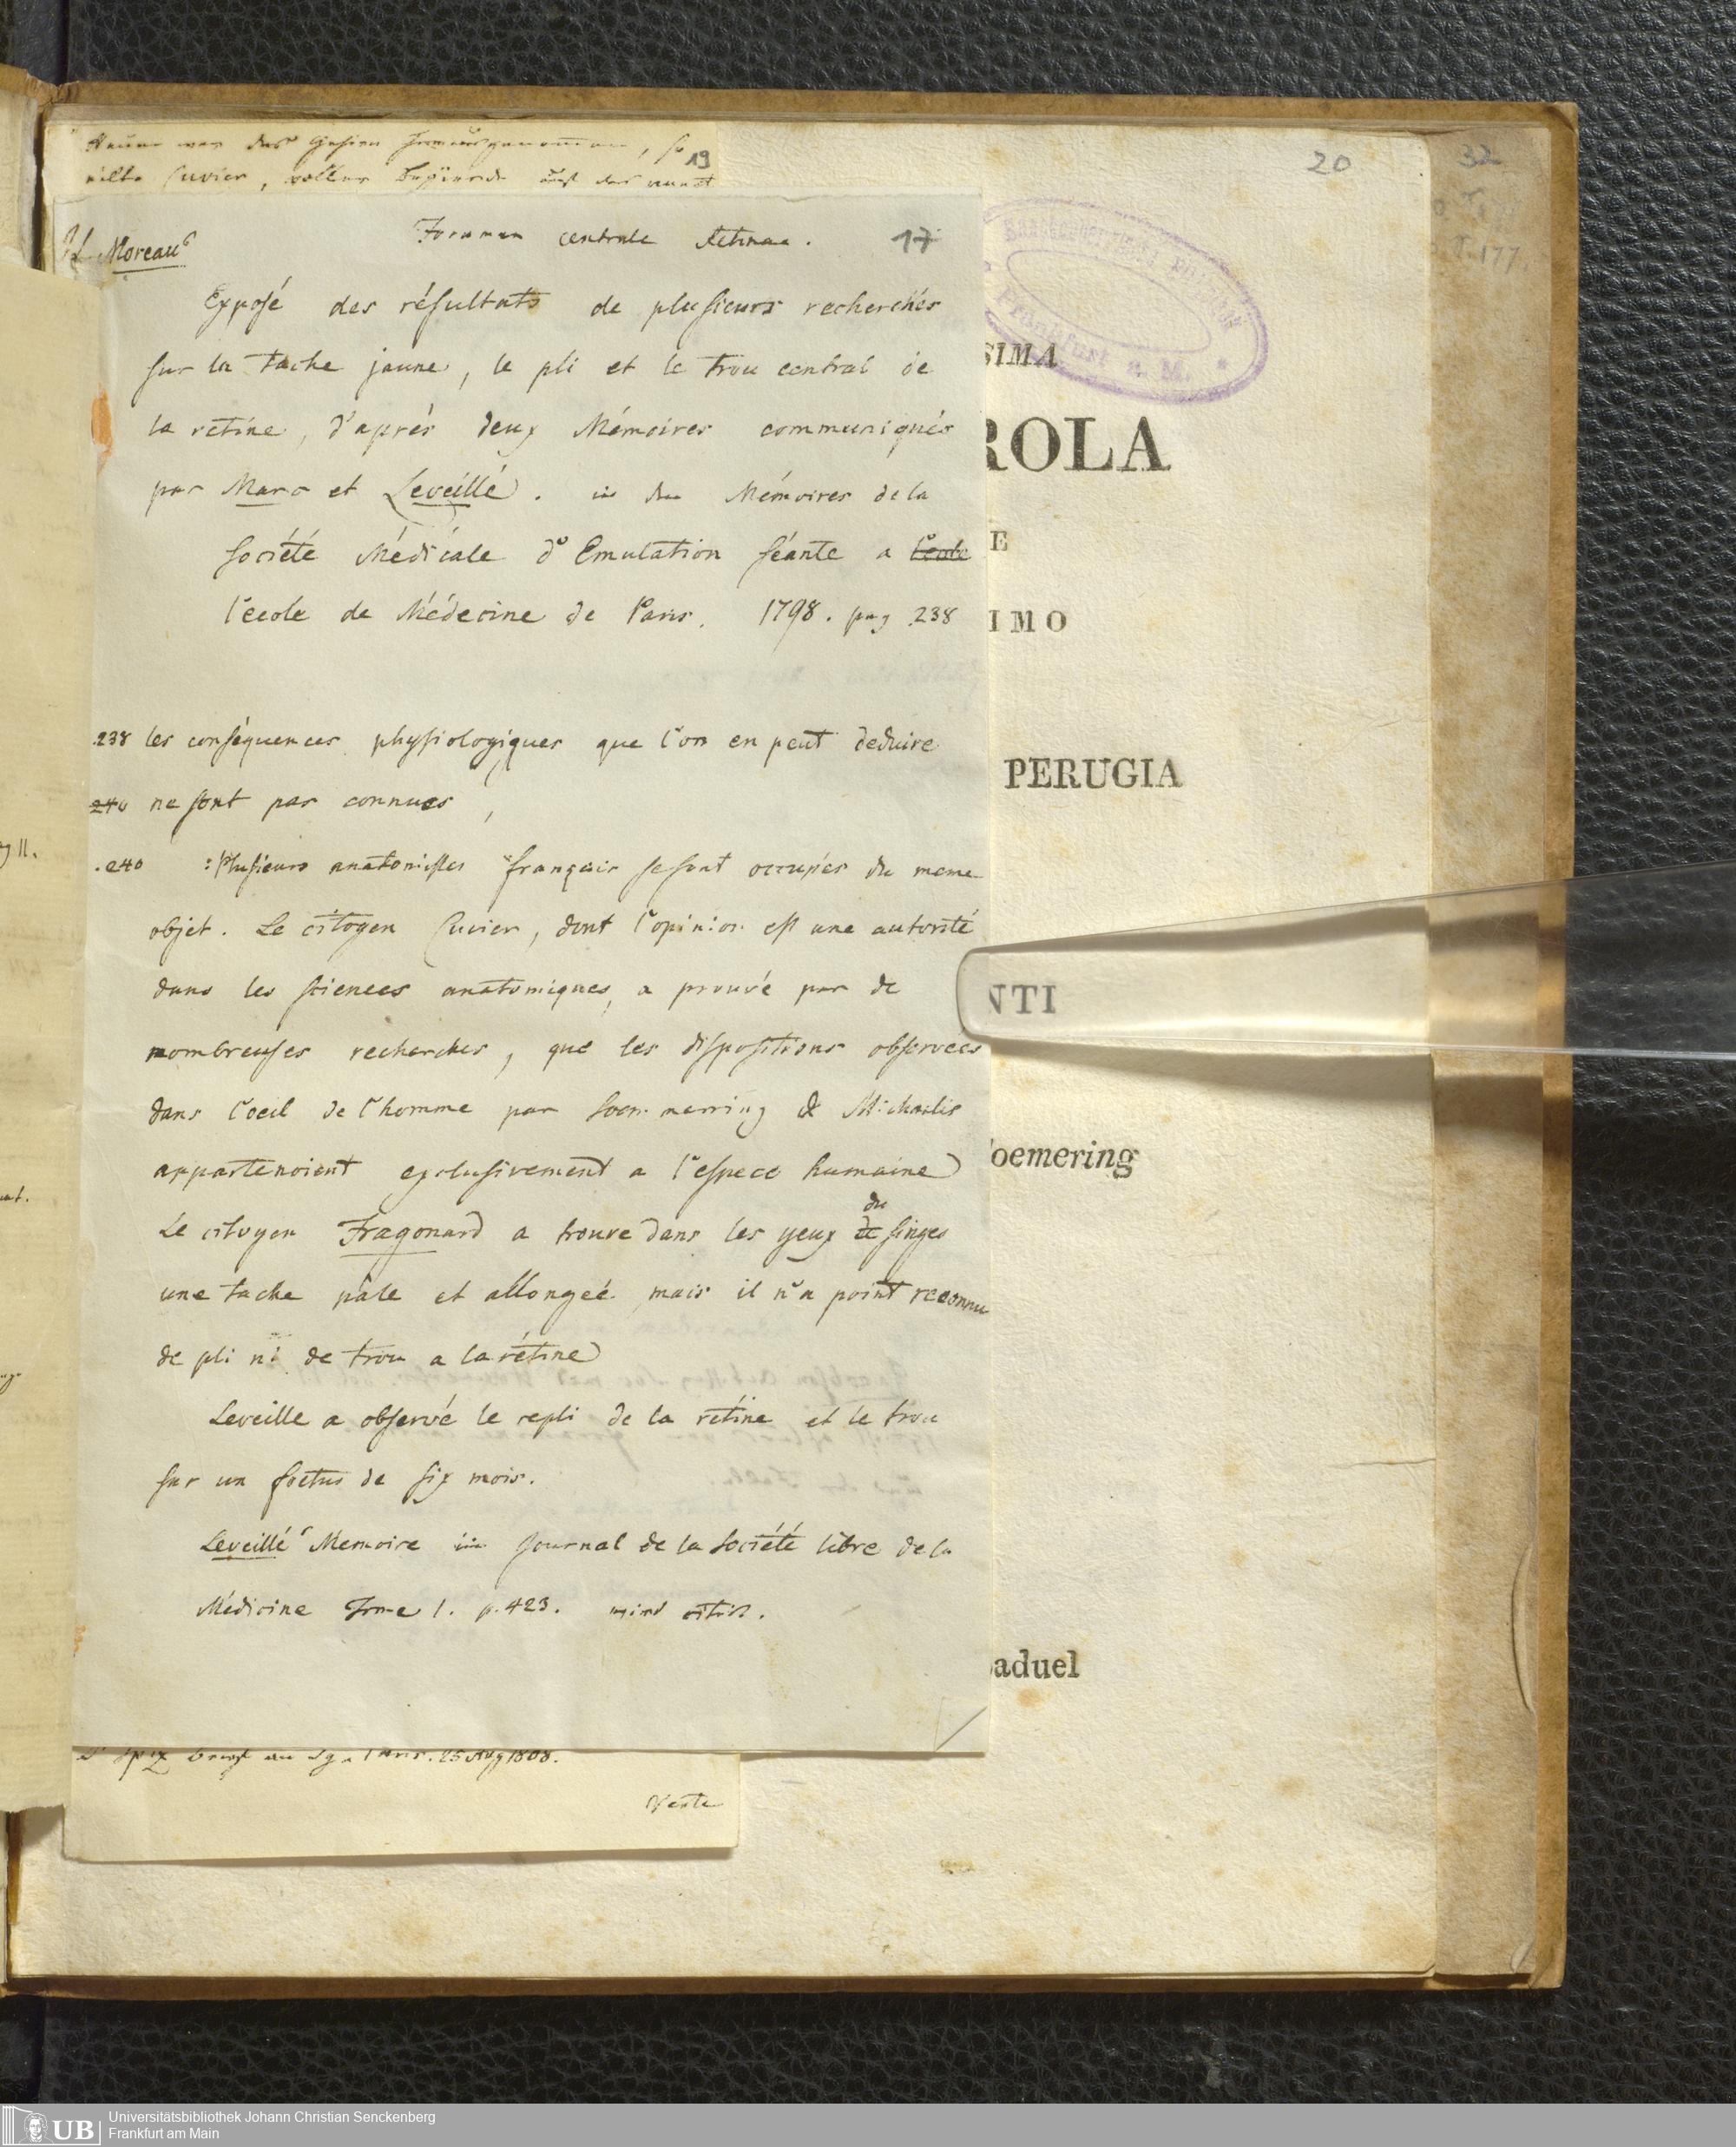 19
eilte Cuvier, voller Begierde auf das
20
32
177
Foramen centrale Retinae. 17
Moreau
Exposé des résultats de plusieurs recherches
sur la tache jaune, le pli et le trou central de
la retine, d'aprés deux Mémoires communiqués
par Marc et Leveillé. in den Mémoires de la
Société Médicale d'Emulation séante a l'ecole
l'ecole de Médecine de Paris. 1798. pag 238
238 les conséquences physiologiques que l'on en peut deduire
240 ne sont pas connues,
240 : Plusieurs anatomistes français se sont occupés du meme
objet. Le citoyen Cuvier, dont l'opinion est une autorité
dans les sciences anatomiques, a prouvé par de
nombreuses recherches, que les dispositions observées
dans l'oeil de l'homme par Soemmerring & Michaelis
appartenoient exclusivement a l'espece humaine
du
Le citoyen Fragonard a trouve dans les yeux de singes
une tache pâle et allongeé mais il n'a point reconnu
de pli ni de trou a la rétine
Leveille a observé le repli de la rétine et le trou
sur un foetus de six mois.
Leveillé's Memoire in Journal de la Société libre de la
Médicine Tome 1. p. 423. wird citirt.
Spix Paris. 25 Aug 1808.
SIMA
ROLA
E
IMO
PERUGIA
NTI
oemering
aduel
Frankfurt a. M.
UB
Universitätsbibliothek Johann Christian Senckenberg
Frankfurt am Main